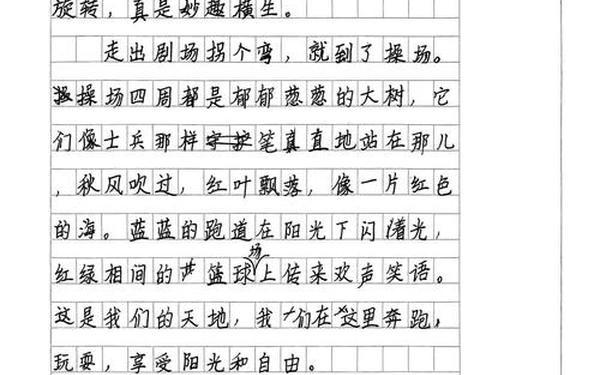 旋转，真是妙趣横生。
走出剧场拐个弯，就到了操场。
操场四周都是郁郁葱葱的大树，它
们像士兵那样守护笔直地站在那儿
，秋风吹过，红叶飘落，像一片红色
的海。蓝蓝的跑道在阳光下闪着光，
红绿相间的篮球场上传来欢声笑语。
这是我们的天地，我们在这里奔跑，
玩耍，享受阳光和自由。